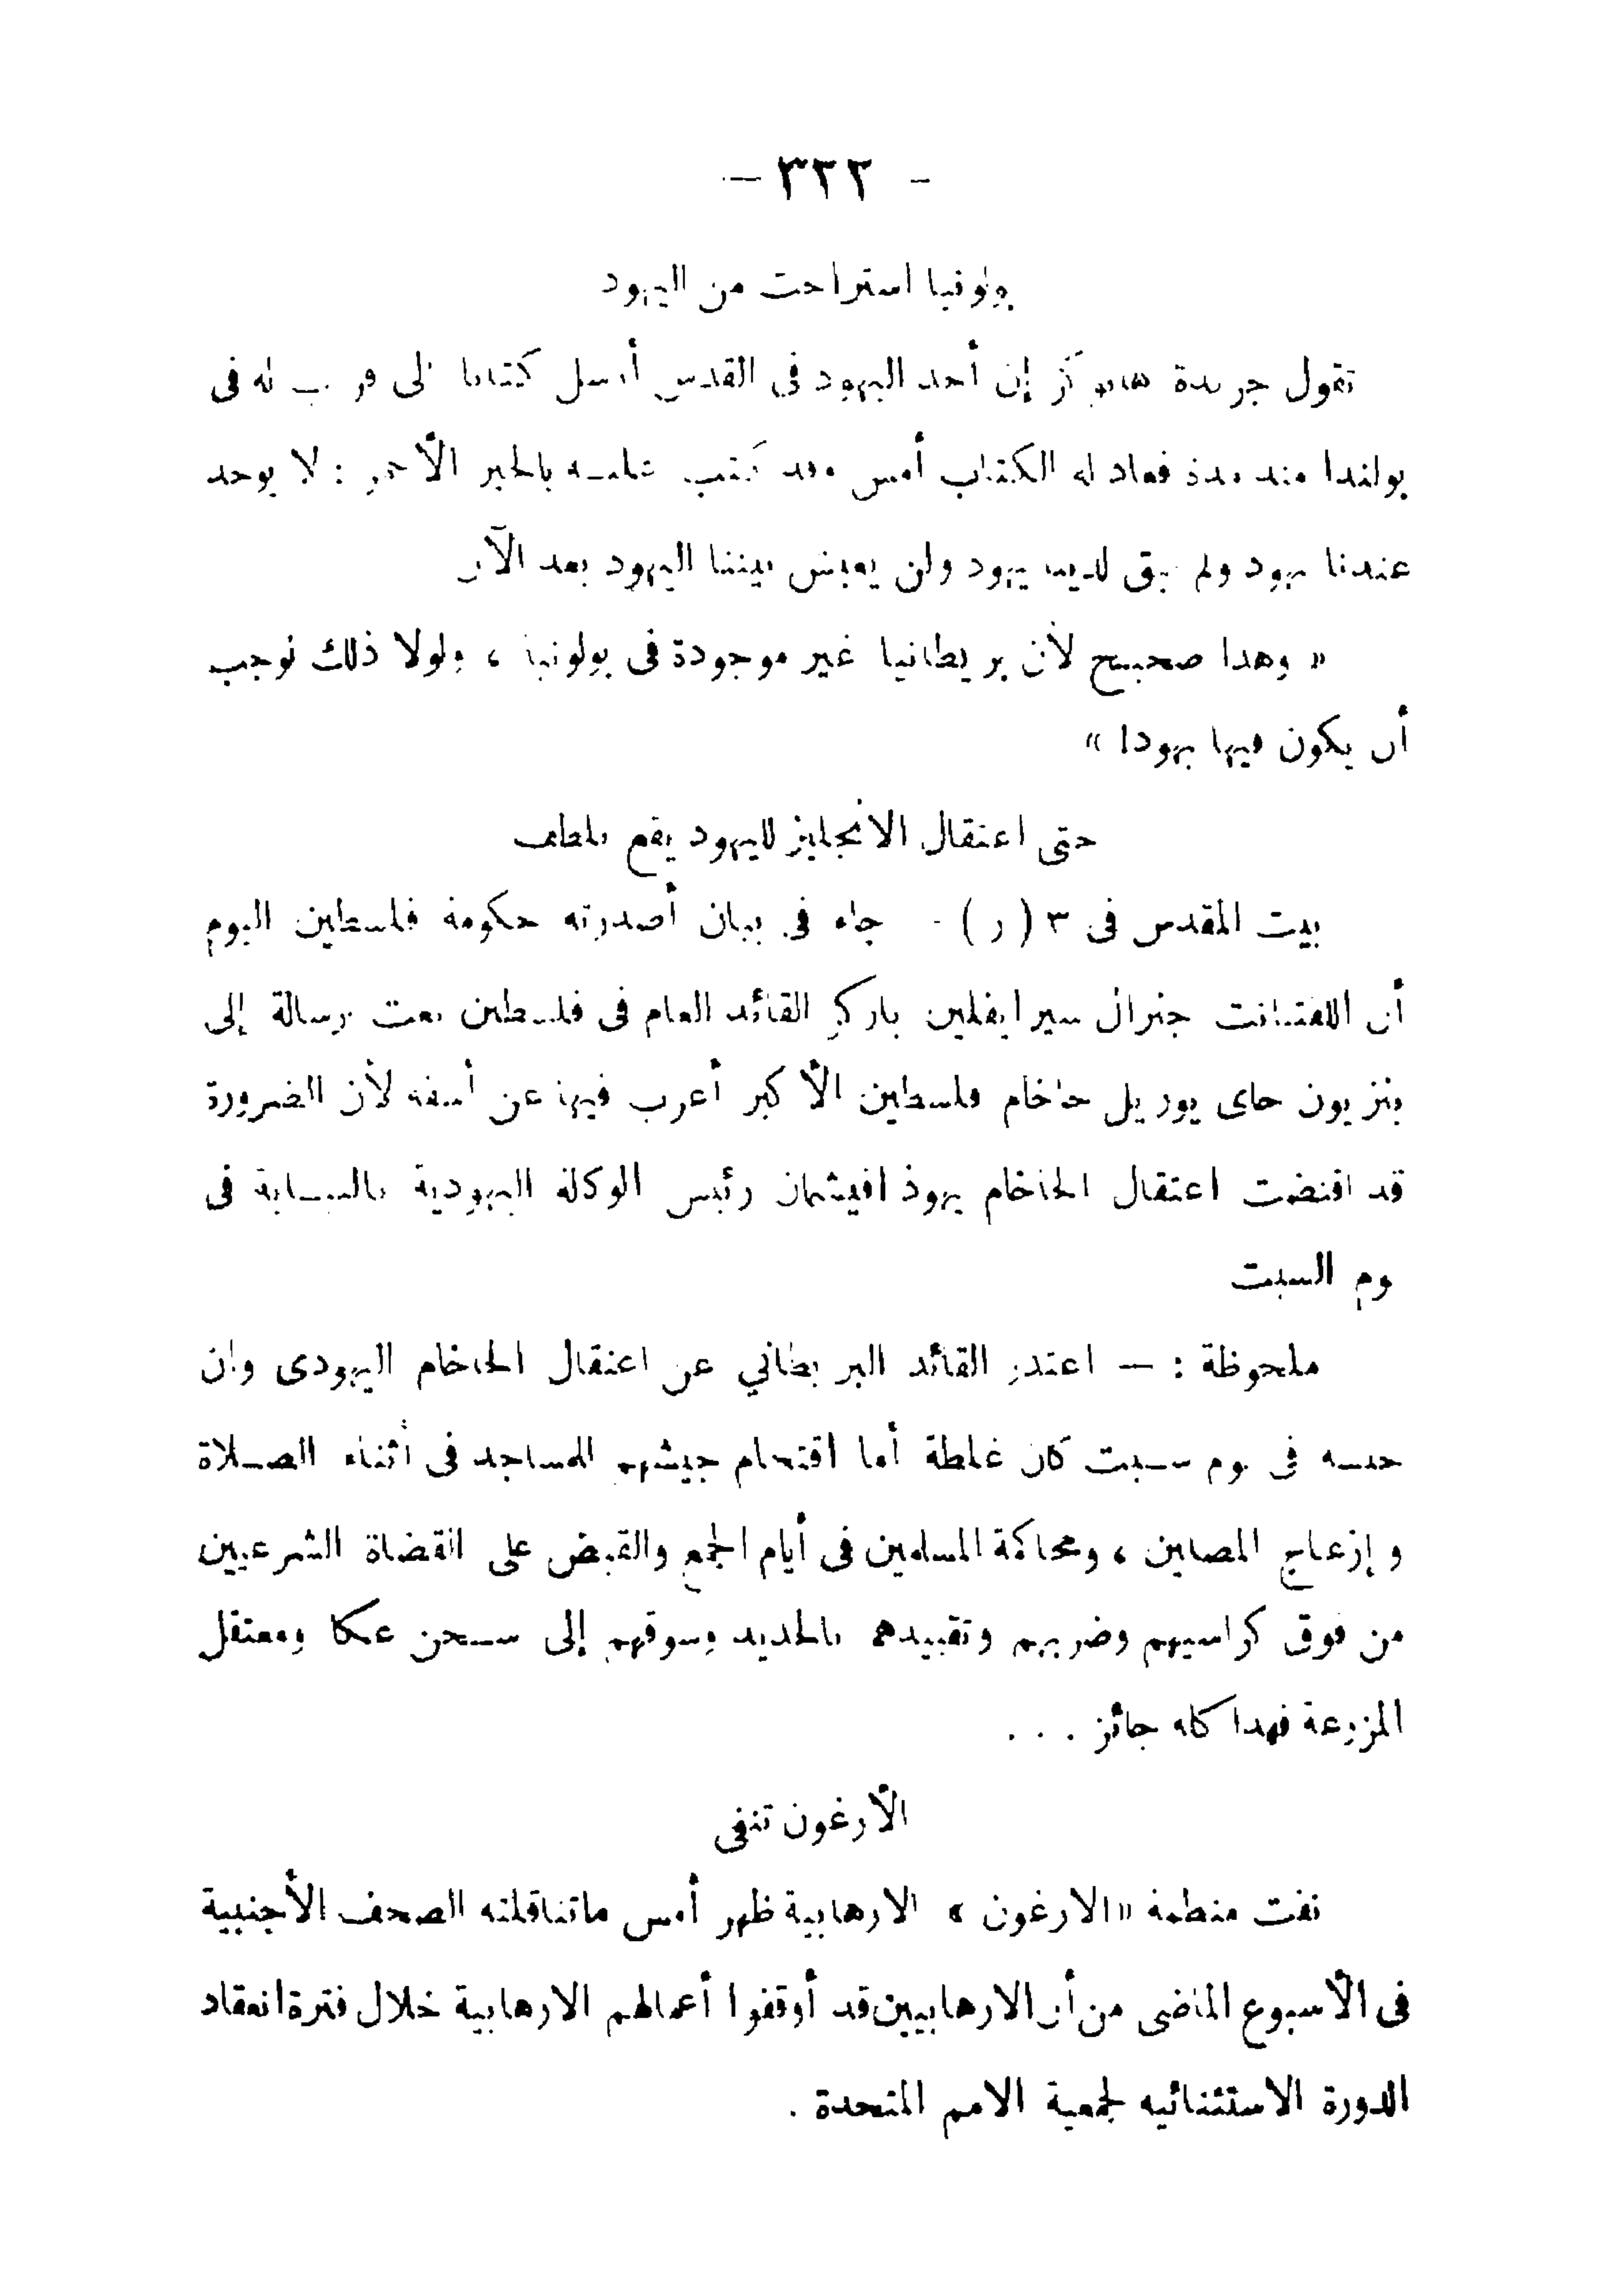 - ٣٢٢ -
بولونيا استراحت من اليهود
تقول جريدة هابوكر إن أحد اليهود فى القدس أرسل كتابا إلى قريب له فى
بولندا منذ مدة فعاد له الكتاب أمس وقد كتب عليه بالحبر الأحمر : لا يوجد
عندنا يهود ولم يبق لدينا يهود ولن يعيش بيننا اليهود بعد الآن
« وهذا صحيح لأن بريطانيا غير موجودة فى بولونيا ، ولولا ذلك لوجب
أن يكون فيها يهودا »
حتى اعتقال الانجليز لليهود يقع بلطف
بيت المقدس فى ٣ ( ر ) - جاء فى بيان أصدرته حكومة فلسطين اليوم
أن اللفتنانت جنرال سير ايفلين باركر القائد العام فى فلسطين بعث برسالة إلى
بنزيون حاى يوزيل حاخام فلسطين الأكبر أعرب فيها عن أسفه لأن الضرورة
قد اقتضت اعتقال الحاخام يهوذا فيشمان رئيس الوكالة اليهودية بالنيابة فى
يوم السبت
ملحوظة : — اعتذر القائد البريطاني عن اعتقال الحاخام اليهودى وان
حبسه فى يوم سبت كان غلطة أما اقتحام جيشهم المساجد فى أثناء الصلاة
و إزعاج المصلين ، ومحاكمة المسلمين فى أيام الجمع والقبض على القضاة الشرعيين
من فوق كراسيهم وضربهم وتقييدهم بالحديد وسوقهم إلى سجن عكا ومعتقل
المزرعة فهذا كله جائز . . .
الأرغون تنفى
نفت منظمة « الارغون » الارهابية ظهر أمس ماتناقلته الصحف الأجنبية
فى الأسبوع الماضى من أن الارهابيين قد أوقفوا أعمالهم الارهابية خلال فترة انعقاد
الدورة الاستثنائيه لجمعية الامم المتحدة .